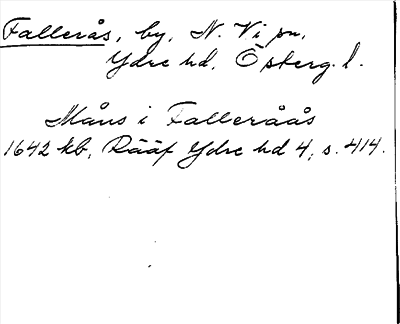 Fallerås, by, N. Vi sn,
Ydre hd, Östberg. l.
Måns i Falleråås
1642 kb, Rääf Ydre hd 4, s. 414.